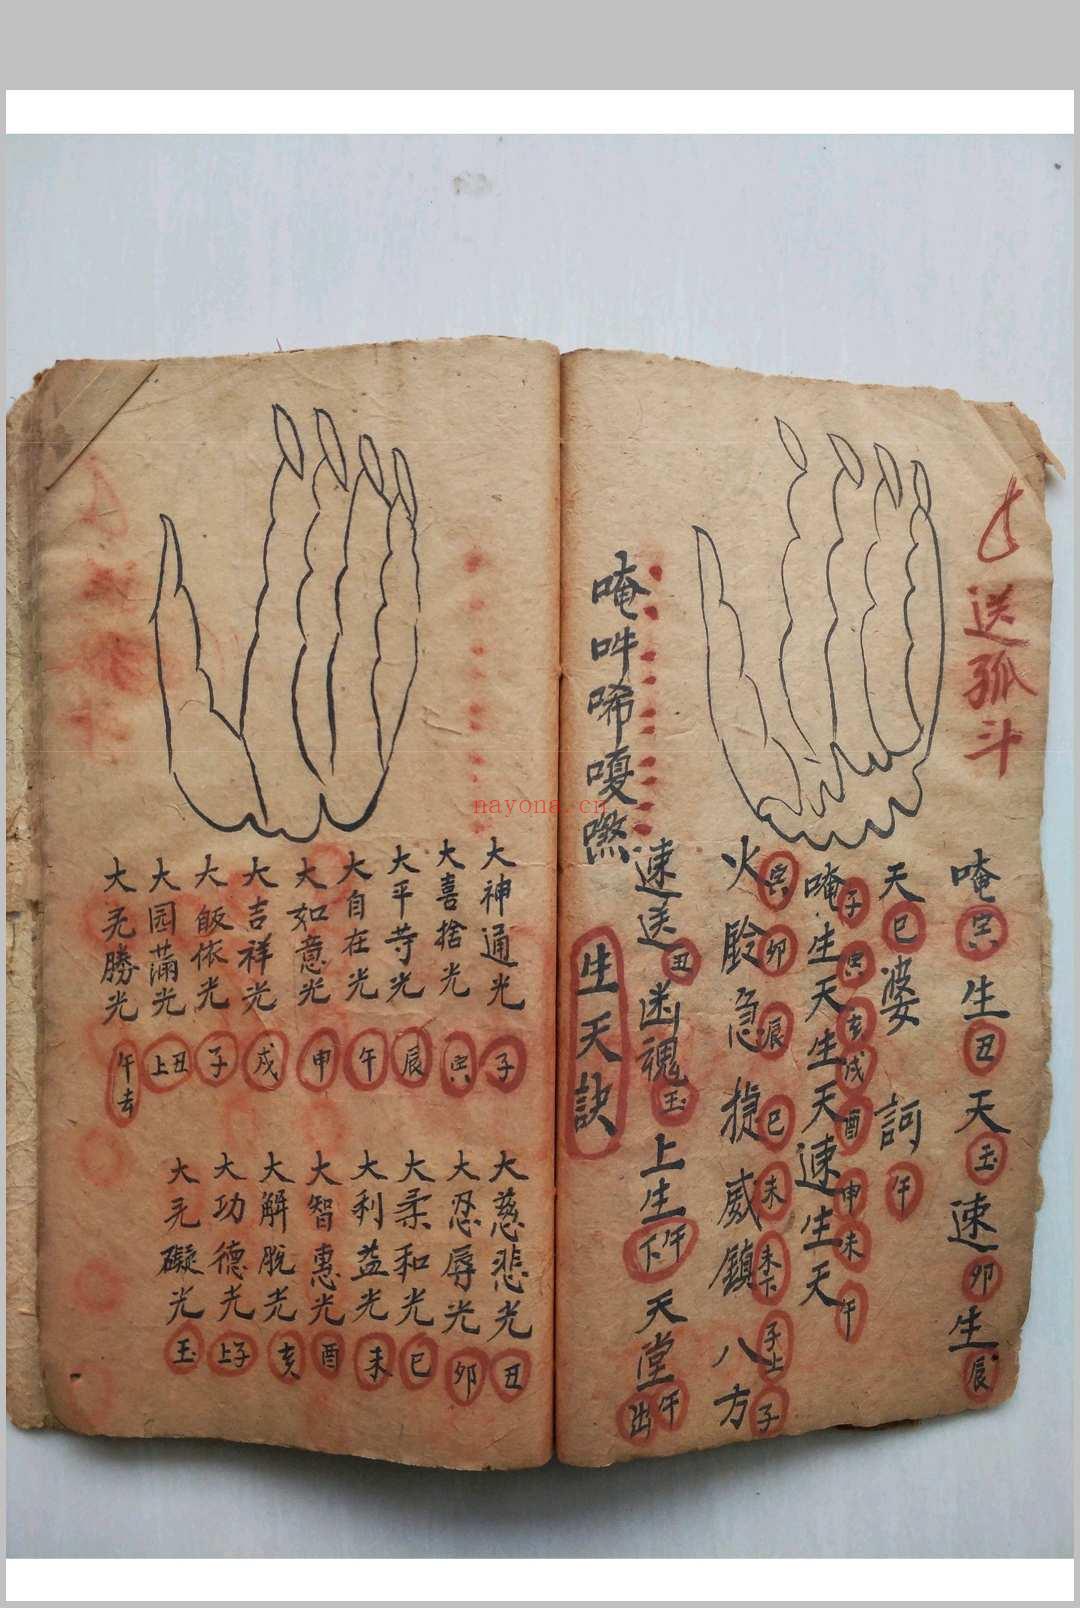 送孤斗
唵寅生丑天玉速卯生辰
天巳婆訶午
唵生天生天速生天
子寅亥戌酉申未午
火鈴急捷威鎮八方
寅卯辰巳未未下子上子
速送丑幽魂玉上生午下天堂午出
唵吽唏嗄
生天訣
大神通光子
大喜捨光寅
大平等光辰
大自在光午
大如意光申
大吉祥光戌
大皈依光子
大园蒲光丑上
大无勝光午去
大慈悲光丑
大忍辱光卯
大柔和光巳
大利益光未
大智惠光酉
大解脫光亥
大功德光子上
大无礙光玉
nayona.cn